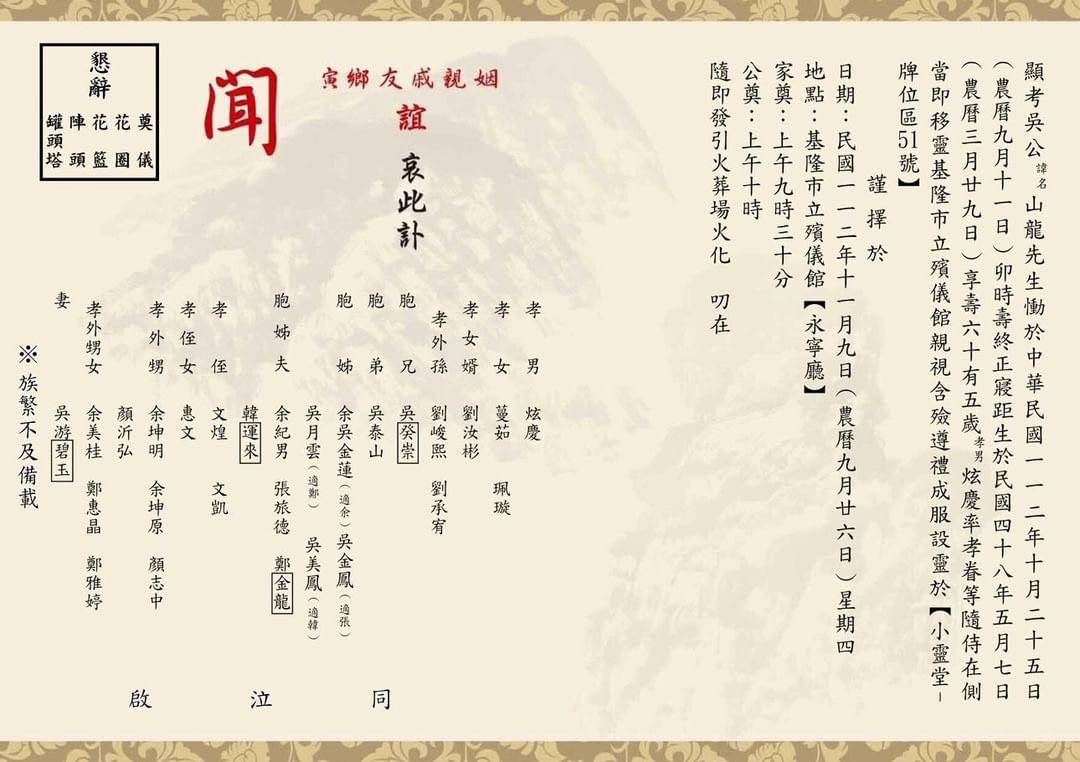 顯考吳公諱名山龍先生慟於中華民國一一二年十月二十五日
（農曆九月十一日）卯時壽終正寢距生於民國四十八年五月七日
（農曆三月廿九日）享壽六十有五歲孝男炫慶率孝眷等隨侍在側
當即移靈基隆市立殯儀館親視含殮遵禮成服設靈於【小靈堂-
牌位區51號】
謹擇於
日期：民國一一二年十一月九日（農曆九月廿六日）星期四
地點：基隆市立殯儀館【永寧廳】
家奠：上午九時三十分
公奠：上午十時
隨即發引火葬場火化 叨在
姻親戚友鄉寅
誼 哀此訃
聞
懇辭
奠儀
花圈
花籃
陣頭
罐頭塔
孝男 炫慶
孝女 蔓茹 珮璇
孝女婿 劉汝彬
孝外孫 劉峻熙 劉承宥
胞兄 吳癸崇
胞弟 吳泰山
胞姊 余吳金蓮（適余）吳金鳳（適張）
吳月雲（適鄭） 吳美鳳（適韓）
胞姊夫 余紀男 張旅德 鄭金龍
韓運來
孝侄 文煌 文凱
孝侄女 惠文
孝外甥 余坤明 余坤原 顏志中
顏沂弘
孝外甥女 余美桂 鄭惠晶 鄭雅婷
妻 吳游碧玉
※族繁不及備載
同泣啟